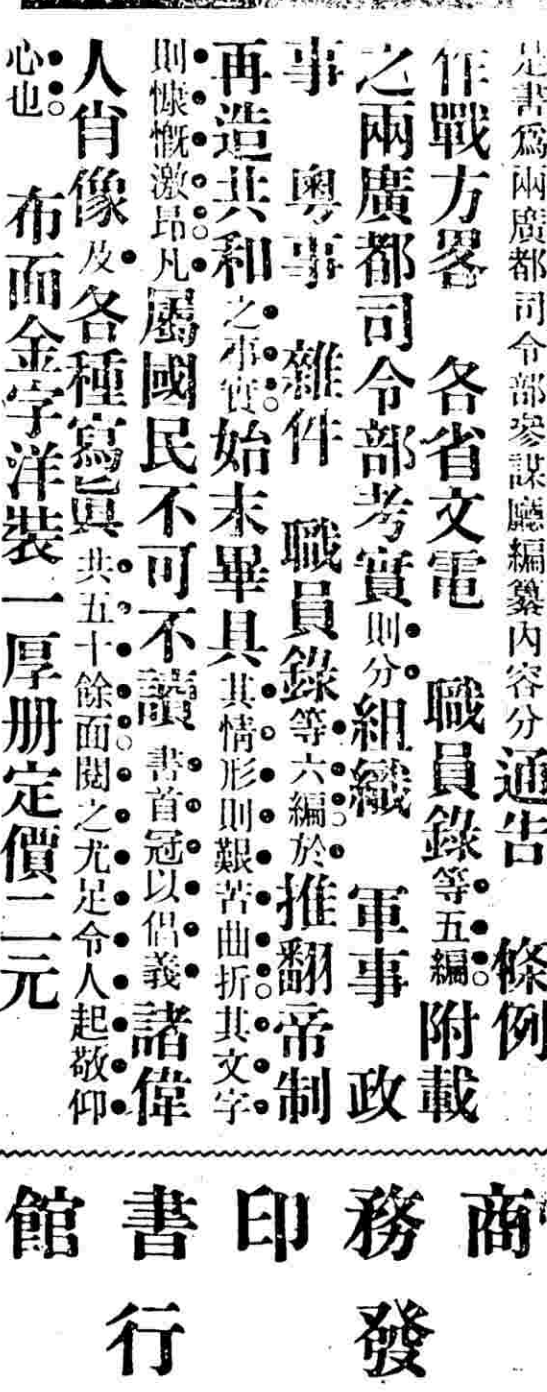 是書爲兩廣都司令部參謀廳編纂內容分通告　條例
作戰方畧　各省文電　職員錄等五編。附載
之兩廣都司令部考實則分組織　軍事　政
事　粵事　雜件　職員錄等六編。於推翻帝制
再造共和之事實。始末畢具其情形則艱苦曲折。其文字
則慷慨激昂。凡屬國民不可不讀　書首冠以倡義諸偉
人肖像及各種寫眞共五十餘面。閱之尤足令人起敬仰
心也。　布面金字洋裝一厚册定價二元
商務印書館
發行